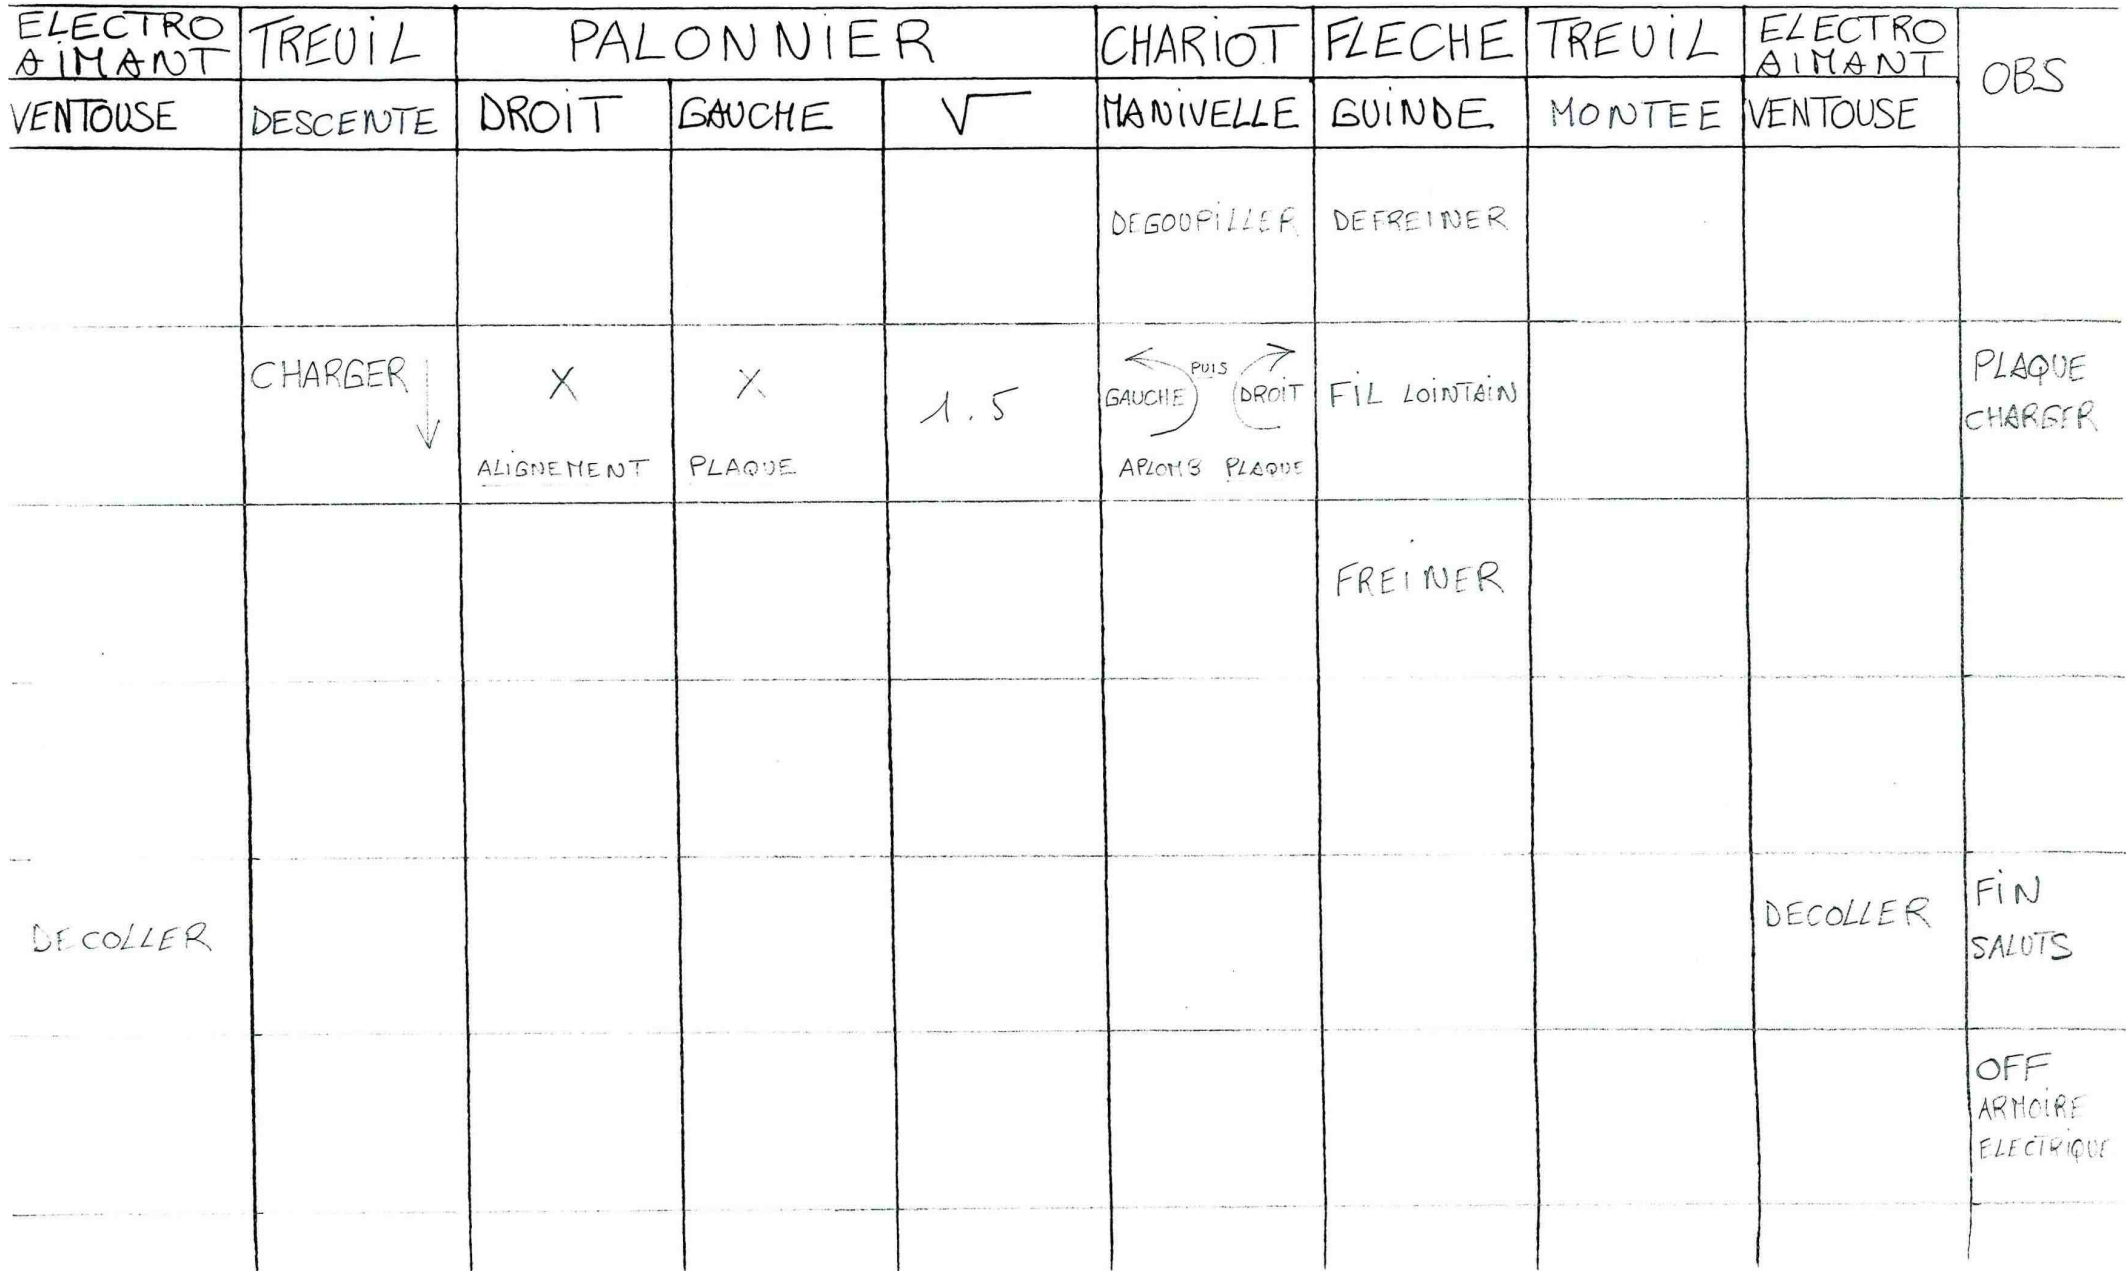 ELECTRO AIMANT TREUIL PALONNIER CHARIOT FLECHE TREUIL ELECTRO AIMANT OBS
VENTOUSE DESCENTE DROIT GAUCHE √ MANIVELLE GUINDE MONTEE VENTOUSE
DEGOUPILLER DEFREINER
CHARGER ↓ X X 1.5 GAUCHE PUIS DROIT FIL LOINTAIN PLAQUE
CHARGER
ALIGNEMENT PLAQUE APLOMB PLAQUE
FREINER
DECOLLER DECOLLER FIN
SALUTS
OFF
ARMOIRE
ELECTRIQUE